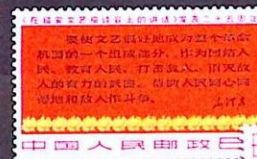 《在延安文艺座谈会上的讲话》发表二十五周年
要使文艺很好地成为整个革命
机器的一个组成部分，作为团结人
民、教育人民、打击敌人、消灭敌
人的有力的武器，帮助人民同心同
德地和敌人作斗争。
毛泽东
中国人民邮政